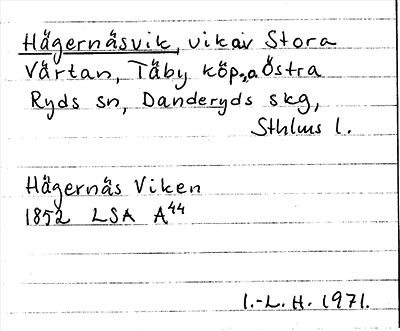 Hägernäsvik, vik av Stora
Värtan, Täby köp. o Östra
Ryds sn, Danderyds skg,
Sthlms l.
Hägernäs Viken
1852 LSA A44
I.-L. H. 1971.